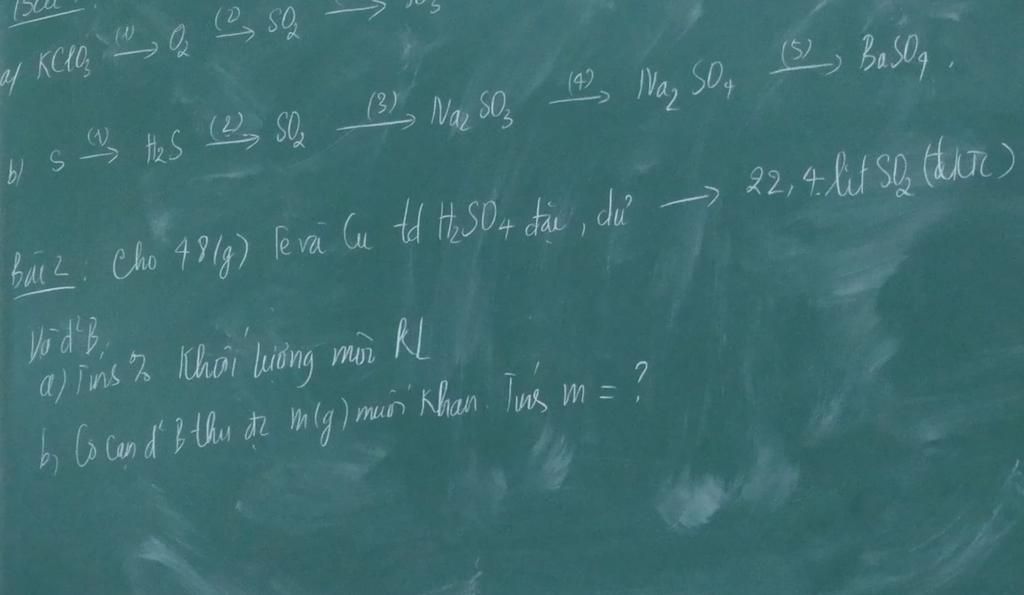 a) KClO₃ (1)→ O₂ (2)→ SO₂ → SO₃
b) S (1)→ H₂S (2)→ SO₂ (3)→ Na₂SO₃ (4)→ Na₂SO₄ (5)→ BaSO₄.
Bài 2. Cho 48(g) Fe và Cu td H₂SO₄ đặc, dư → 22,4 lit SO₂ (đktc)
Và d² B,
a) Tính % Khối lượng mỗi KL
b, Cô cạn d² B thu đc m(g) muối Khan. Tính m = ?